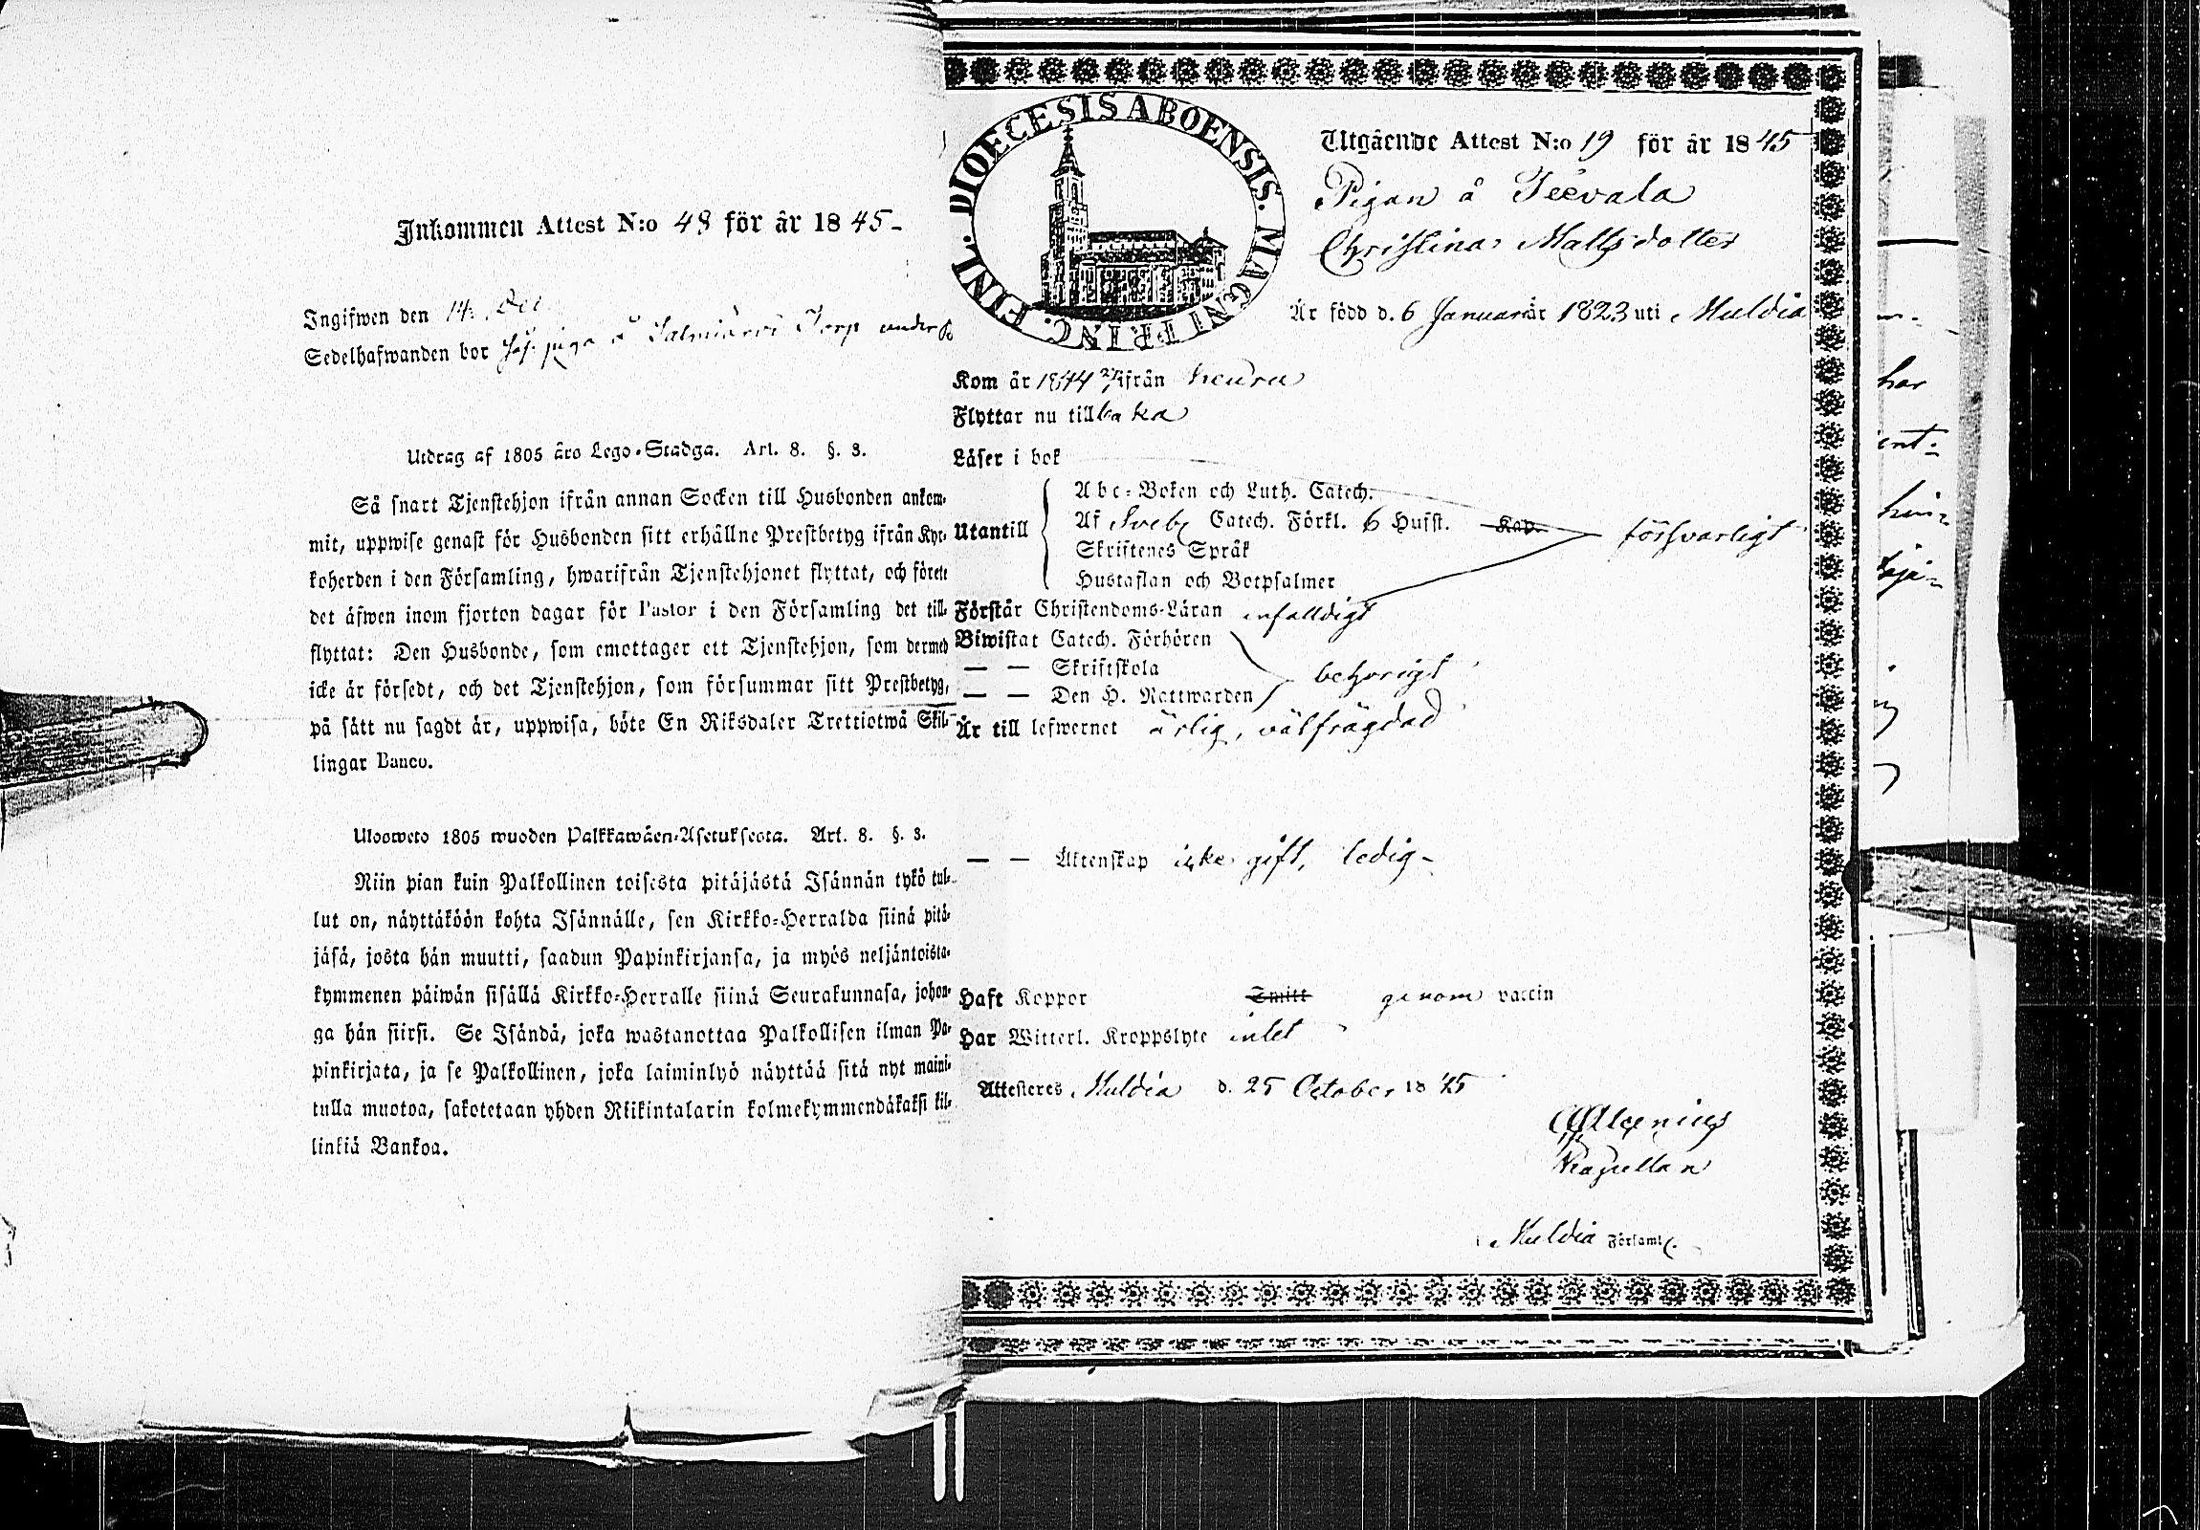 Inkommen Attest N:o 48 för år 1845-
Ingifwen den 14 Dec
Sedelhafwanden bor piga å Salmiärvi Torp under
Utdrag af 1805 års Lego-Stadga. Art. 8. §. 3.
Så snart Tjenstehjon ifrån annan Socken till Husbonden ankom-
mit, uppwise genast för Husbonden sitt erhållne Prestbetyg ifrån Kyr-
koherden i den Församling, hwarifrån Tjenstehjonet flyttat, och förete
det äfwen inom fjorton dagar för Pastor i den Församling det till-
flyttat: Den Husbonde, som emottager ett Tjenstehjon, som dermed
icke är försedt, och det Tjenstehjon, som försummar sitt Prestbetyg,
på sätt nu sagdt är, uppwisa, böte En Riksdaler Trettiotwå Skil-
lingar Banco.
Ulosweto 1805 wuoden Palkkawäen-Asetuksesta. Art. 8. §. 3.
Niin pian kuin Palkollinen toisesta pitäjästä Isännän tykö tul-
lut on, näyttäköön kohta Isännälle, sen Kirkko-Herralda siinä pitä-
jäsä, josta hän muutti, saadun Papinkirjansa, ja myös neljäntoista-
kymmenen päiwän sisällä Kirkko-Herralle siinä Seurakunnasa, johon-
ga hän siirsi. Se Isändä, joka wastanottaa Palkollisen ilman Pa-
pinkirjata, ja se Palkollinen, joka laiminlyö näyttää sitä nyt maini-
tulla muotoa, sakotetaan yhden Riikintalarin kolmekymmendäkaksi kil-
linkiä Bankoa.
DIOECESIS ABOENSIS. MAGNI PRINC. FINL.
Utgående Attest N:o 19 för år 1845
Pigan å Teevala
Christina Mattsdotter
Är född d. 6 Januari år 1823 uti Muldia
Kom år 1844 ifrån Keuru
Flyttar nu tillbaka
Läser i bok
Utantill
Abc-Boken och Luth. Catech.
Af Sveb. Catech. Förkl. 6 Hufst. Kap. försvarligt
Skriftenes Språk
Hustaflan och Botpsalmer
Förstår Christendoms-Läran enfalldigt
Biwistat Catech. Förhören
— — Skriftskola behörigt
— — Den H. Nattwarden
Är till lefwernet ärlig, välfrägdad
— — Äktenskap icke gift, ledig-
Haft Koppor Smitt genom vaccin
Har Witterl. Kroppslyte intet
Attesteres Muldia d. 25 October 1845
Kapellan
i Muldia Församl.
har
ent-